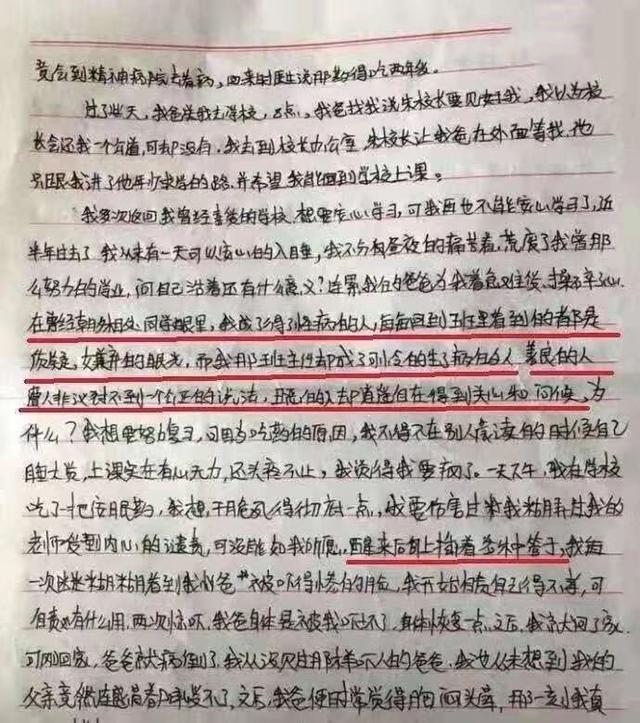 竟会到精神病院去看病，回来时医生说那药得吃两年级。
过了些天，我爸送我去学校，8点，我爸找我说朱校长要见我，我以为校
长会还我一个公道，可却没有，我去到校长办公室，朱校长让我爸在外面等我，他
只跟我讲了他年少求学的路，并希望我能回到学校上课。
我多次返回我曾经喜爱的学校，想要安心学习，可我再也不能安心学习了，近
半年过去了，我从未有一天可以安心的入睡，我不分昼夜的痛苦着，荒废了我曾那
么努力的学业，问自己活着还有什么意义？连累我的爸爸为我着急难过，操
在曾经朝夕相处同学眼里，我成了得了病的人，每每回到班里看到的都是
质疑，嫌弃的眼光，而我那班主任却成了可怜的生了病的人，善良的人
遭人非议得不到一个公正的说法，丑恶的人却逍遥自在得到关心和问候，为
什么？我想要努力复习，可因为吃药的原因，我不得不在别人晨读的时候自己
睡大觉，上课实在有心无力，还头疼不止，我觉得我要疯了。一天下午，我在学校
吃了一把安眠药，我想，干脆死得彻底一点，我要伤害过我抛弃过我的
老师受到内心的谴责，可没能如我所愿，醒来后身上插着
一次迷迷糊糊看到我的爸爸被吓得惨白的脸，我开始自责自己得不孝，可
自责又有什么用，两次惊吓，我爸身体显被我吓坏了，身体恢复一点之后，我就出院回了家，
可刚回家，爸爸就大病倒了，我从没见过那样吓人的爸爸，我也从未想到我的
父亲竟然连